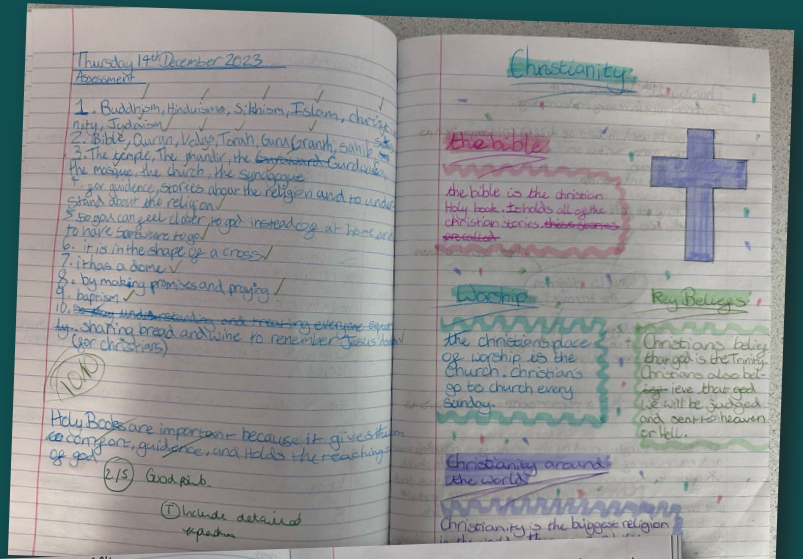 Thursday 14th December 2023
Assessment
1. Buddhism, Hinduism, Sikhism, Islam, christia
nity, Judaism
2. Bible, Quran, Vedas, Torah, Guru Granth, sahib
3. The temple, The mandir, the Gurdwara
the mosque, the church, the synagogue
4. for guidence, stories about the religion and to under
stand about the religion
5. so you can feel closer to god instead of at home and
to have somwhere to go
6. it is in the shape of a cross
7. it has a dome
8. by making promises and praying
9. baptism
10. so day understanding and treating everyone
sharing bread and wine to remember Jesus
(for christians)
10/10
Holy Books are important because it gives them
comfort, guidence, and Holds the teachings
of god
2/5 Good pub.
① Include detailed
Christianity
the bible
the bible is the christian
Holy book. It holds all of the
christian stories. these stories
are called
Worship
the christians place
of worship is the
Church. christians
go to church every
sunday.
Key Beliefs
Christians belief
that god is the Trinity.
Christians also bel-
ieve that god
we will be judged
and sent to heaven
or Hell.
Christianity around
the world
Christianity is the biggest religion